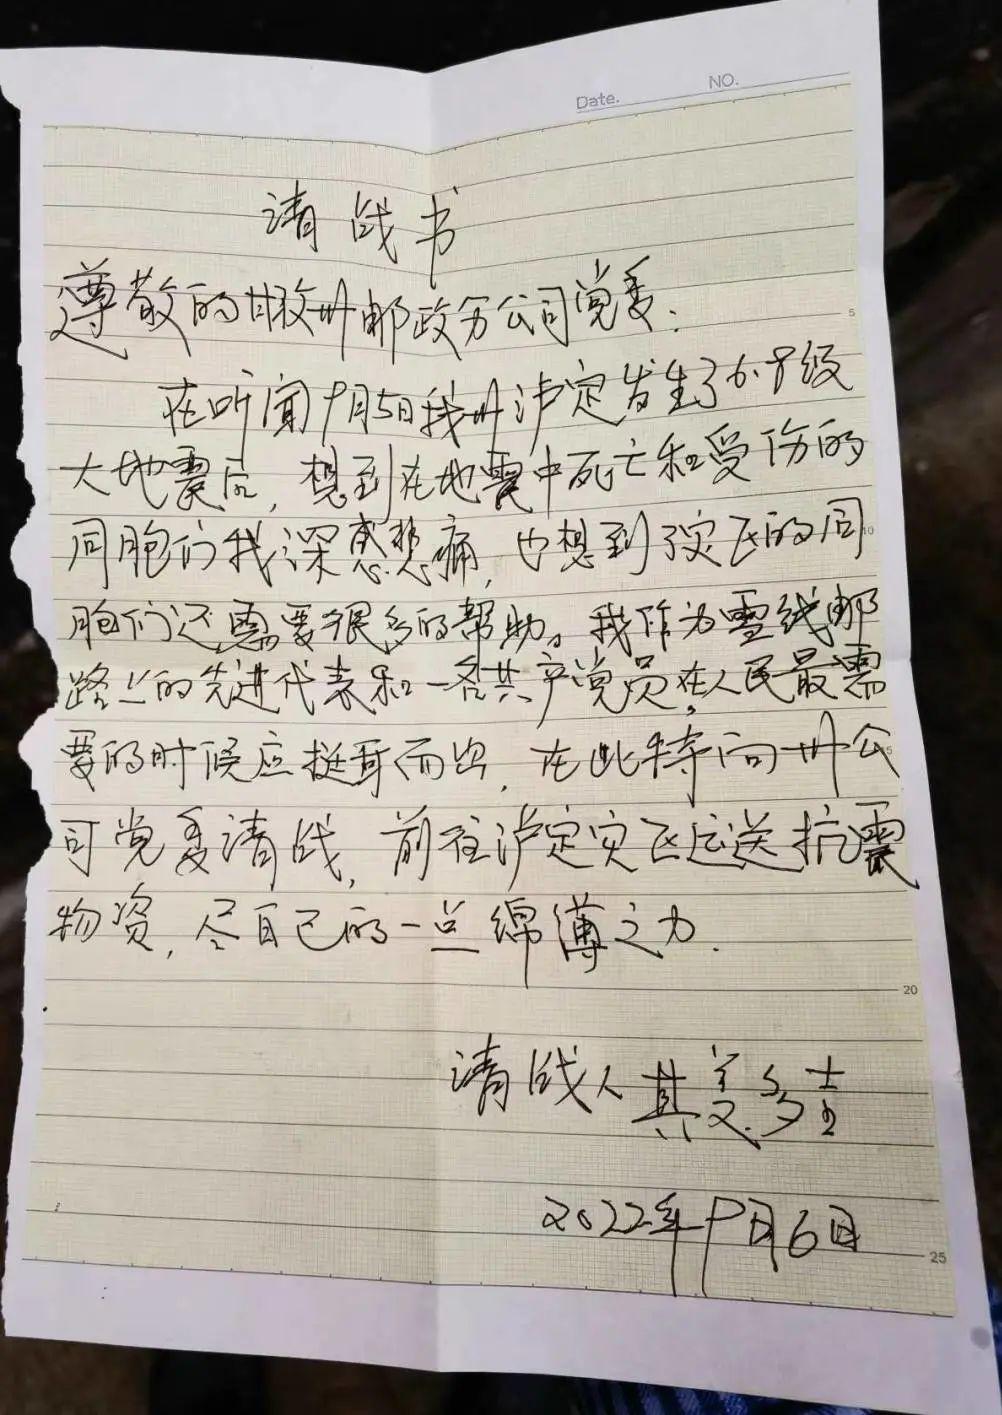 Date. NO.
请战书
尊敬的甘孜州邮政分公司党委:
5
在听闻9月5日我州泸定发生了6.8级
大地震后,想到在地震中死亡和受伤的
同胞们我深感悲痛,也想到了灾区的同
10
胞们还需要很多的帮助。我作为雪线邮
路上的先进代表和一名共产党员,在人民最需
要的时候应挺身而出,在此特向州公
15
司党委请战,前往泸定灾区运送抗震
物资,尽自己的一点绵薄之力.
20
请战人 其美多吉
2022年9月6日
25